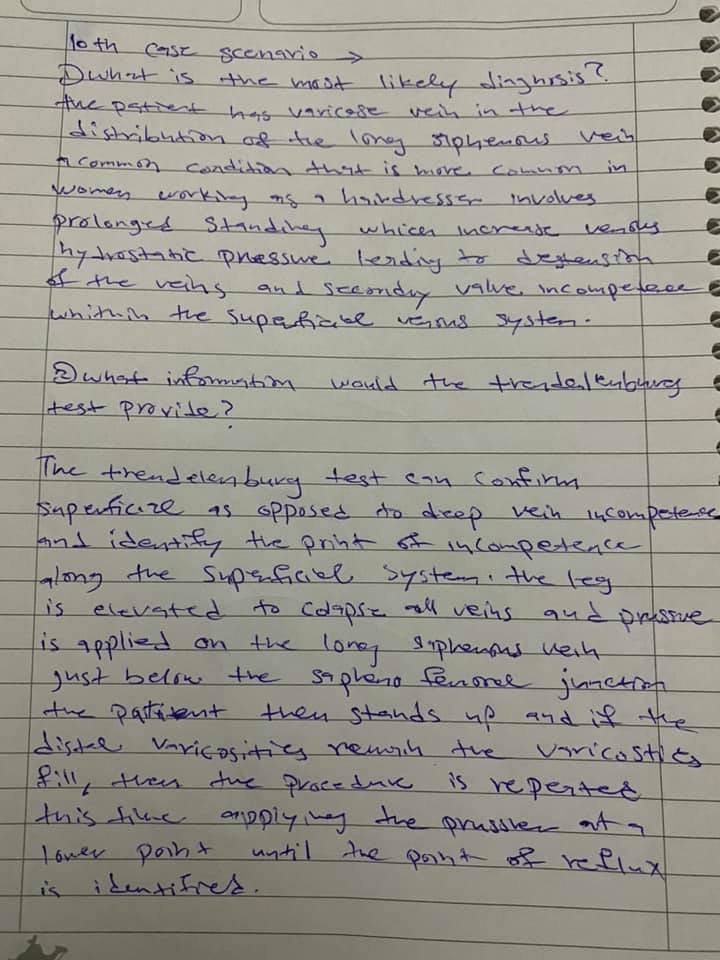 10th case scenario →
① what is the most likely diagnosis?
the patient has varicose vein in the
distribution of the long siphenous vein
a common condition that is more common in
women working as a hairdresser involves
prolonged standing which increase venous
hydrostatic pressure leading to destension
of the veins and secondry valve incompetence
whithin the superficial venous system.
② what information would the trendelenburg
test provide?
The trendelenburg test can confirm
superficial as opposed to deep vein incompetence
and identify the print of incompetence
along the superficial system. the leg
is elevated to colapse all veins and pressure
is applied on the long siphenous vein
just below the sapheno femoral junction
the patient then stands up and if the
distal varicosities remain the varicosties
fill, then the procedure is repeated
this time applying the prussier at a
lower point until the point of reflux
is identified.